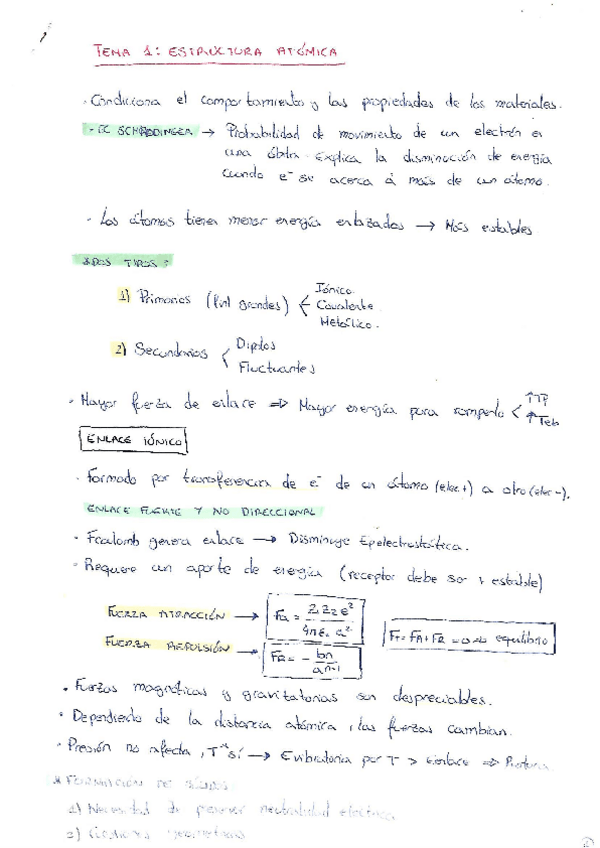 TEMA 1: ESTRUCTURA ATÓMICA
· Condiciona el comportamiento y las propiedades de los materiales.
- EC SCHRÖDINGER → Probabilidad de movimiento de un electrón en
una órbita. Explica la disminución de energía
cuando e⁻ se acerca a más de un átomo.
- Los átomos tienen menor energía enlazados → Más estables
DOS TIPOS:
1) Primarios (Fint grandes) < Iónico.
Covalente.
Metálico.
2) Secundarios < Dipolos
Fluctuantes
· Mayor fuerza de enlace => Mayor energía para romperlo < ↑TF
↑Teb
ENLACE IÓNICO
· Formado por transferencia de e⁻ de un átomo (elec+) a otro (elec-).
ENLACE FUERTE Y NO DIRECCIONAL
· Fcoulomb genera enlace → Disminuye Epelectrostática.
· Requiere un aporte de energía (receptor debe ser + estable)
FUERZA ATRACCIÓN → Fa = Z1Z2e² / 4πE0a²
FUERZA REPULSIÓN → FR = - bn / aⁿ⁻¹
FT = FA + FR = 0 equilibrio
· Fuerzas magnéticas y gravitatorias son despreciables.
· Dependiendo de la distancia atómica, las fuerzas cambian.
· Presión no afecta, Tª sí → Evibratoria por T > Eenlace =>
* FORMACIÓN DE
1) Necesidad de neutralidad eléctrica
2)